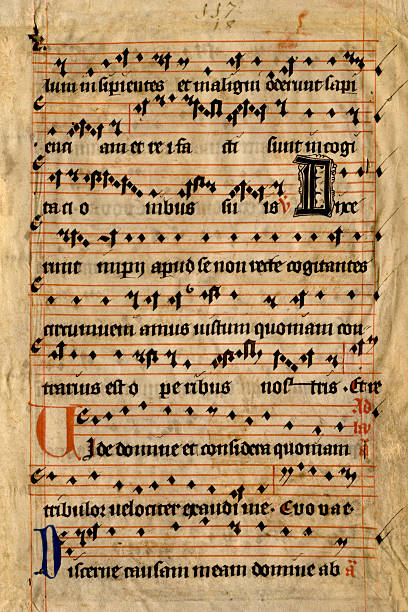 117
18
lum insipientes et maligni oderunt sapi
enci am et re i fa cti sunt in cogi
ta ci o nibus su is ℣ Dixe
runt impii apud se non recte cogitantes
circumveniamus iustum quoniam con
trarius est o pe ribus nos tris. Et re
Ad
Vide domine et considera quoniam
tribulor velociter exaudi me. Evovae.
Discerne causam meam domine ab a